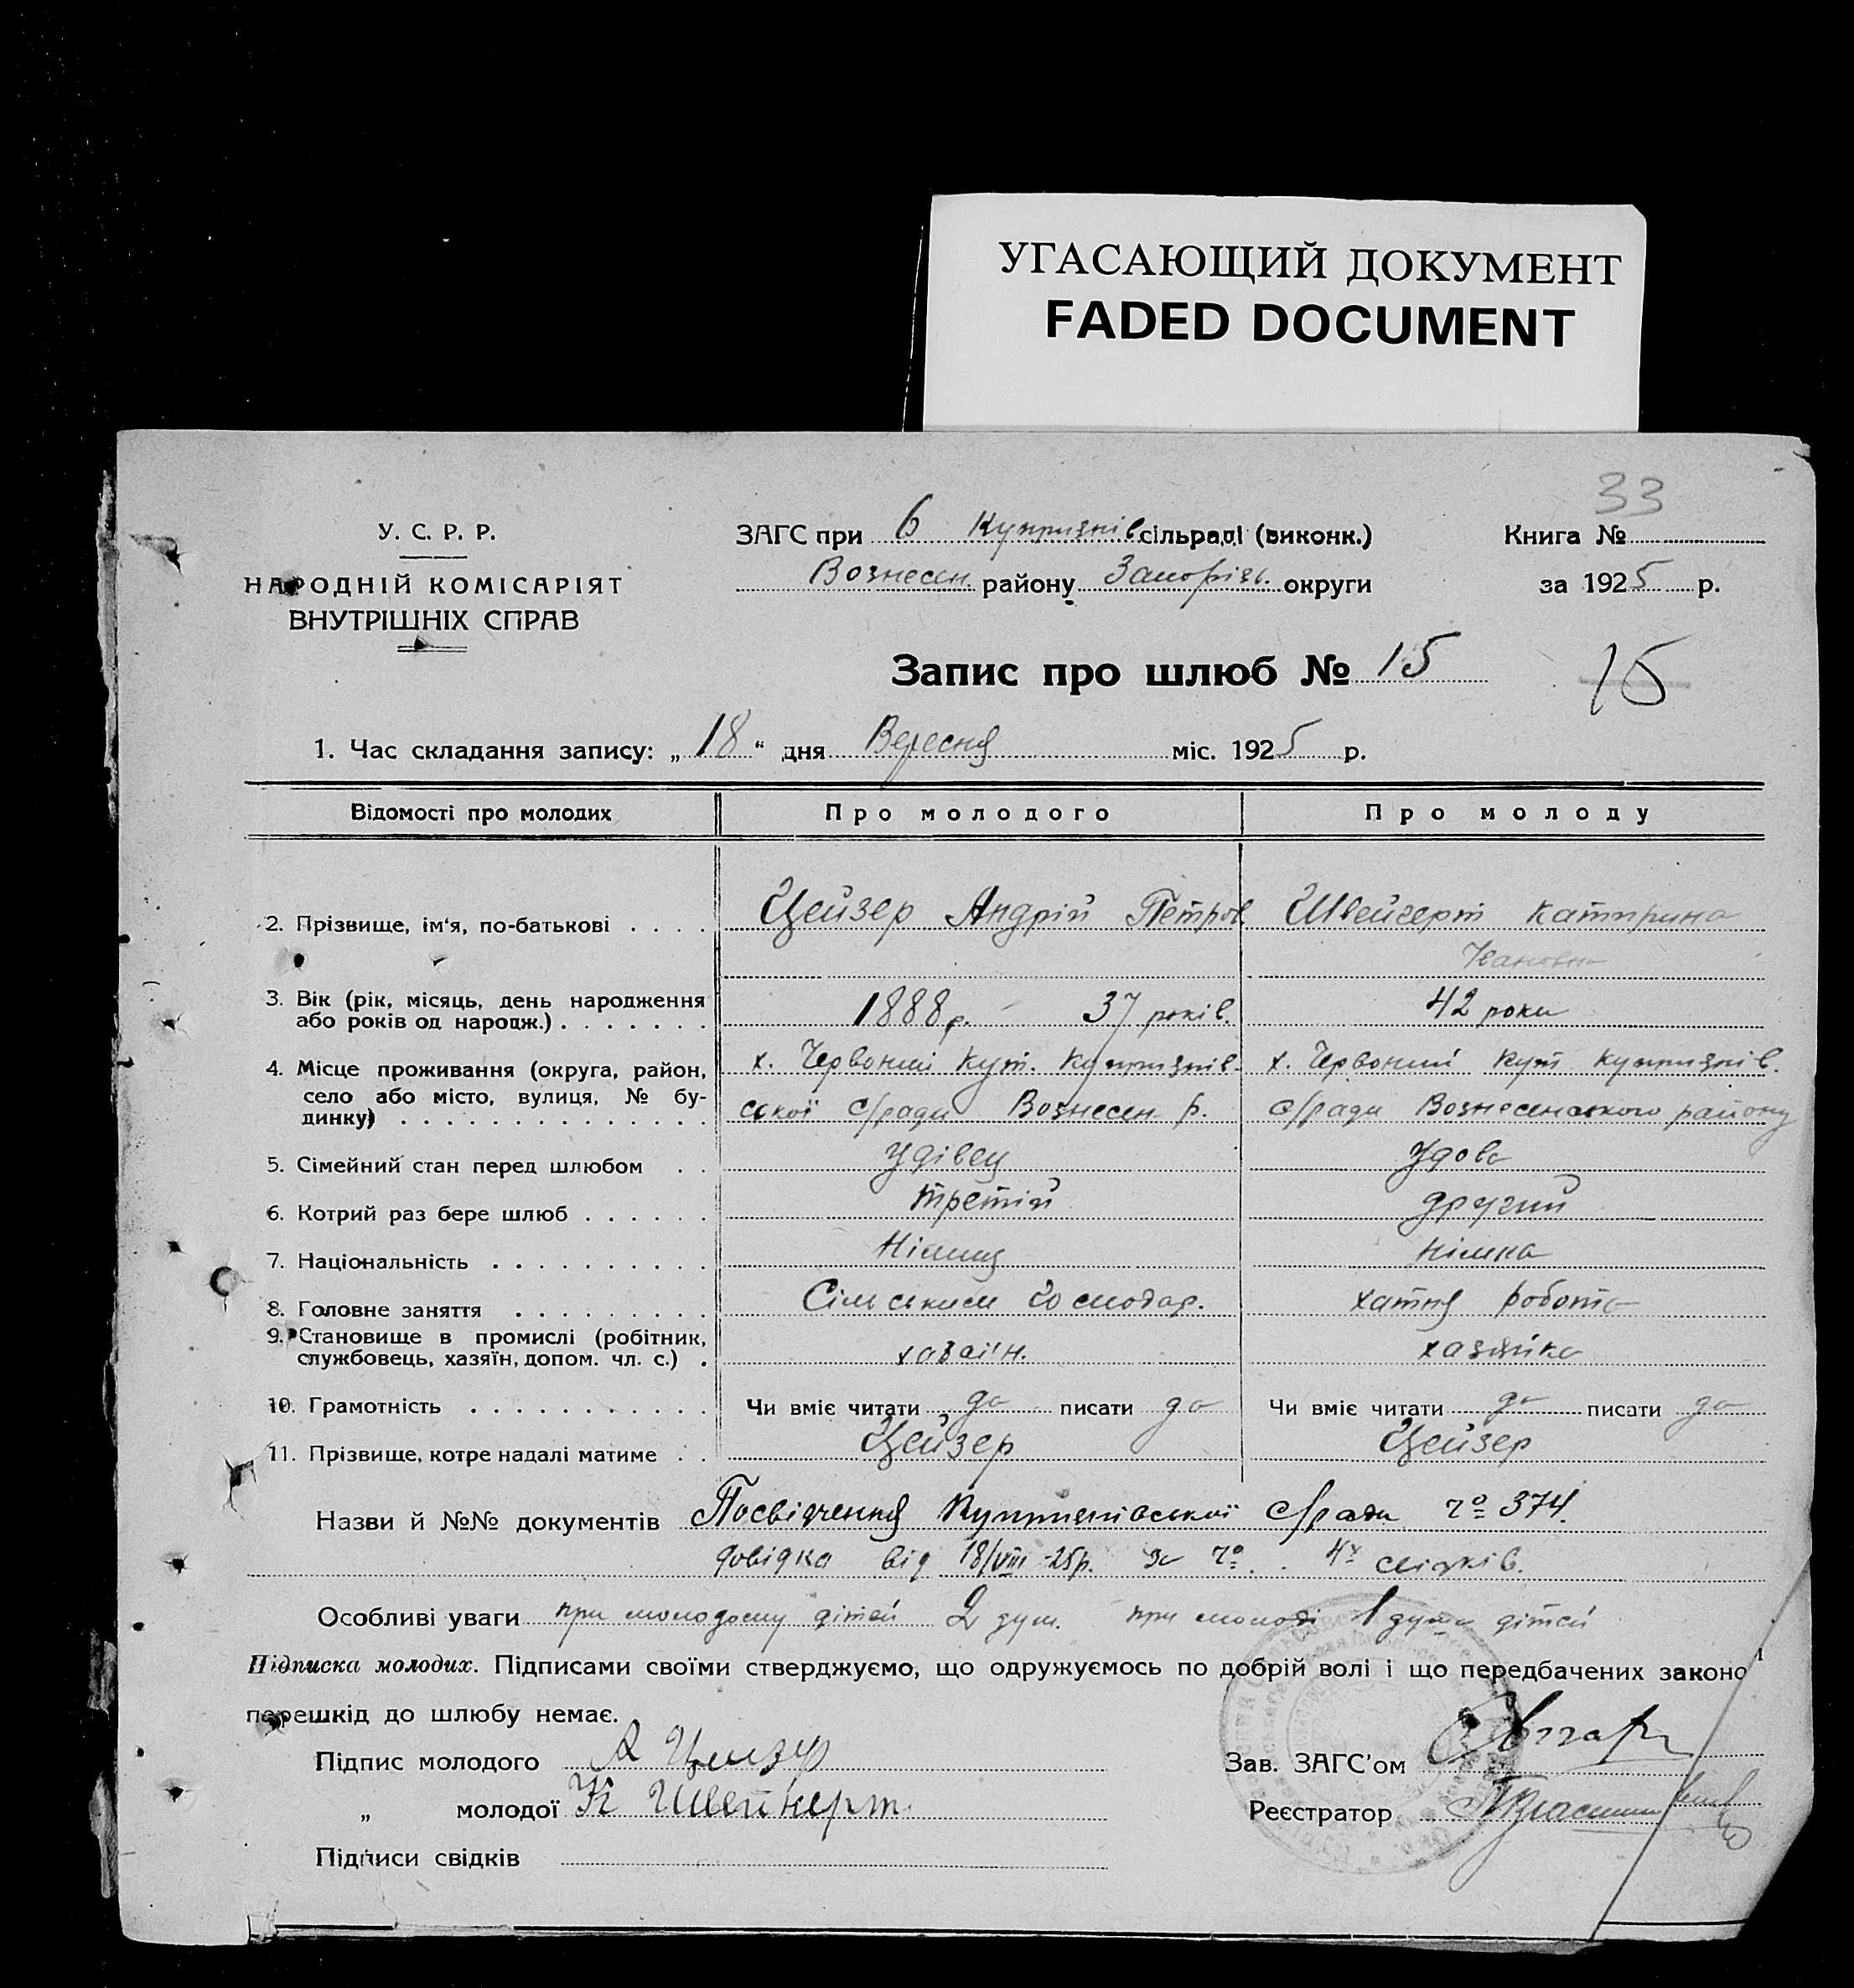 УГАСАЮЩИЙ ДОКУМЕНТ
FADED DOCUMENT
33
У. С. Р. Р.
НАРОДНІЙ КОМІСАРІЯТ
ВНУТРІШНІХ СПРАВ
ЗАГС при 6 Куприянів сільраді (виконк.)
Вознесен. району Запорізь. округи
Книга №
за 1925 р.
Запис про шлюб № 15
15
1. Час складання запису: „18“ дня Вересня міс. 1925 р.
Відомості про молодих Про молодого Про молоду
2. Прізвище, ім'я, по-батькові . . . . Цейзер Андрій Петров Швейгерт Катирина
Івановна
3. Вік (рік, місяць, день народження
або років од народж.) . . . . . . . 1888 р. – 37 років. 42 роки
4. Місце проживання (округа, район,
село або місто, вулиця, № бу-
динку) . . . . . . . . . . . . . .
х. Червоний Кут. Куприянів-
ської с/ради Вознесен р.
х. Червоний Кут Куприянів.
с/ради Вознесенського району
5. Сімейний стан перед шлюбом . . Удівец Удова
6. Котрий раз бере шлюб . . . . . . третій другий
7. Національність . . . . . . . . . . Німиц Німка
8. Головне заняття . . . . . . . . . Сільським господар. хатня робота
9. Становище в промислі (робітник,
службовець, хазяїн, допом. чл. с.) . хазаїн. хазяйка
10. Грамотність . . . . . . . . . . . Чи вміє читати да писати да Чи вміє читати да писати да
11. Прізвище, котре надалі матиме . . Цейзер Цейзер
Назви й №№ документів Посвідчення Куприянівської с/ради № 374.
довідка від 18/VIII-25р. за № . 4х свідків.
Особливі уваги при молодому дітей 2 душ. при молоді 1 душа дітей
Підписка молодих. Підписами своїми стверджуємо, що одружуємось по добрій волі і що передбачених законо
перешкід до шлюбу немає.
Підпис молодого А Цейзер
„ молодої К Швейгерт
Підписи свідків
Зав. ЗАГС'ом
Реєстратор